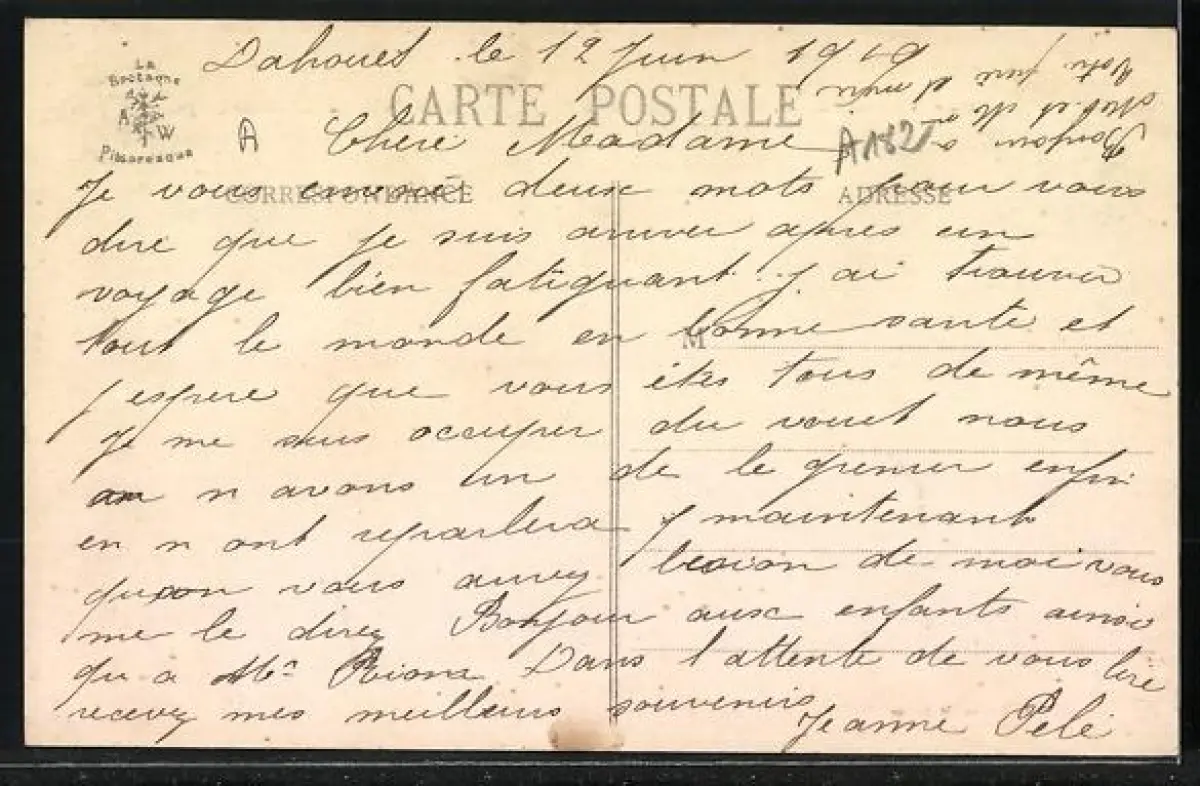 La
Bretagne
A W
Pittoresque
Dahouet le 12 Juin 1919
CARTE POSTALE
A Chère Madame
A182
CORRESPONDANCE
ADRESSE
Je vous envoie deux mots pour vous
dire que je suis arriver après un
voyage bien fatiguant. j ai trouver
tout le monde en bonne sante et
M
j espere que vous êtes tous de même
Je me suis occuper du vouet nous
n avons un de le premier enfin
en n ont reparlera maintenant
quon vous aurez besoin de moi vous
me le direz Bonjour aux enfants ainsi
qu a Mr Dans l attente de vous lire
recevez mes meilleurs souvenirs
Jeanne Pelé
Bonjour a
et
Votre